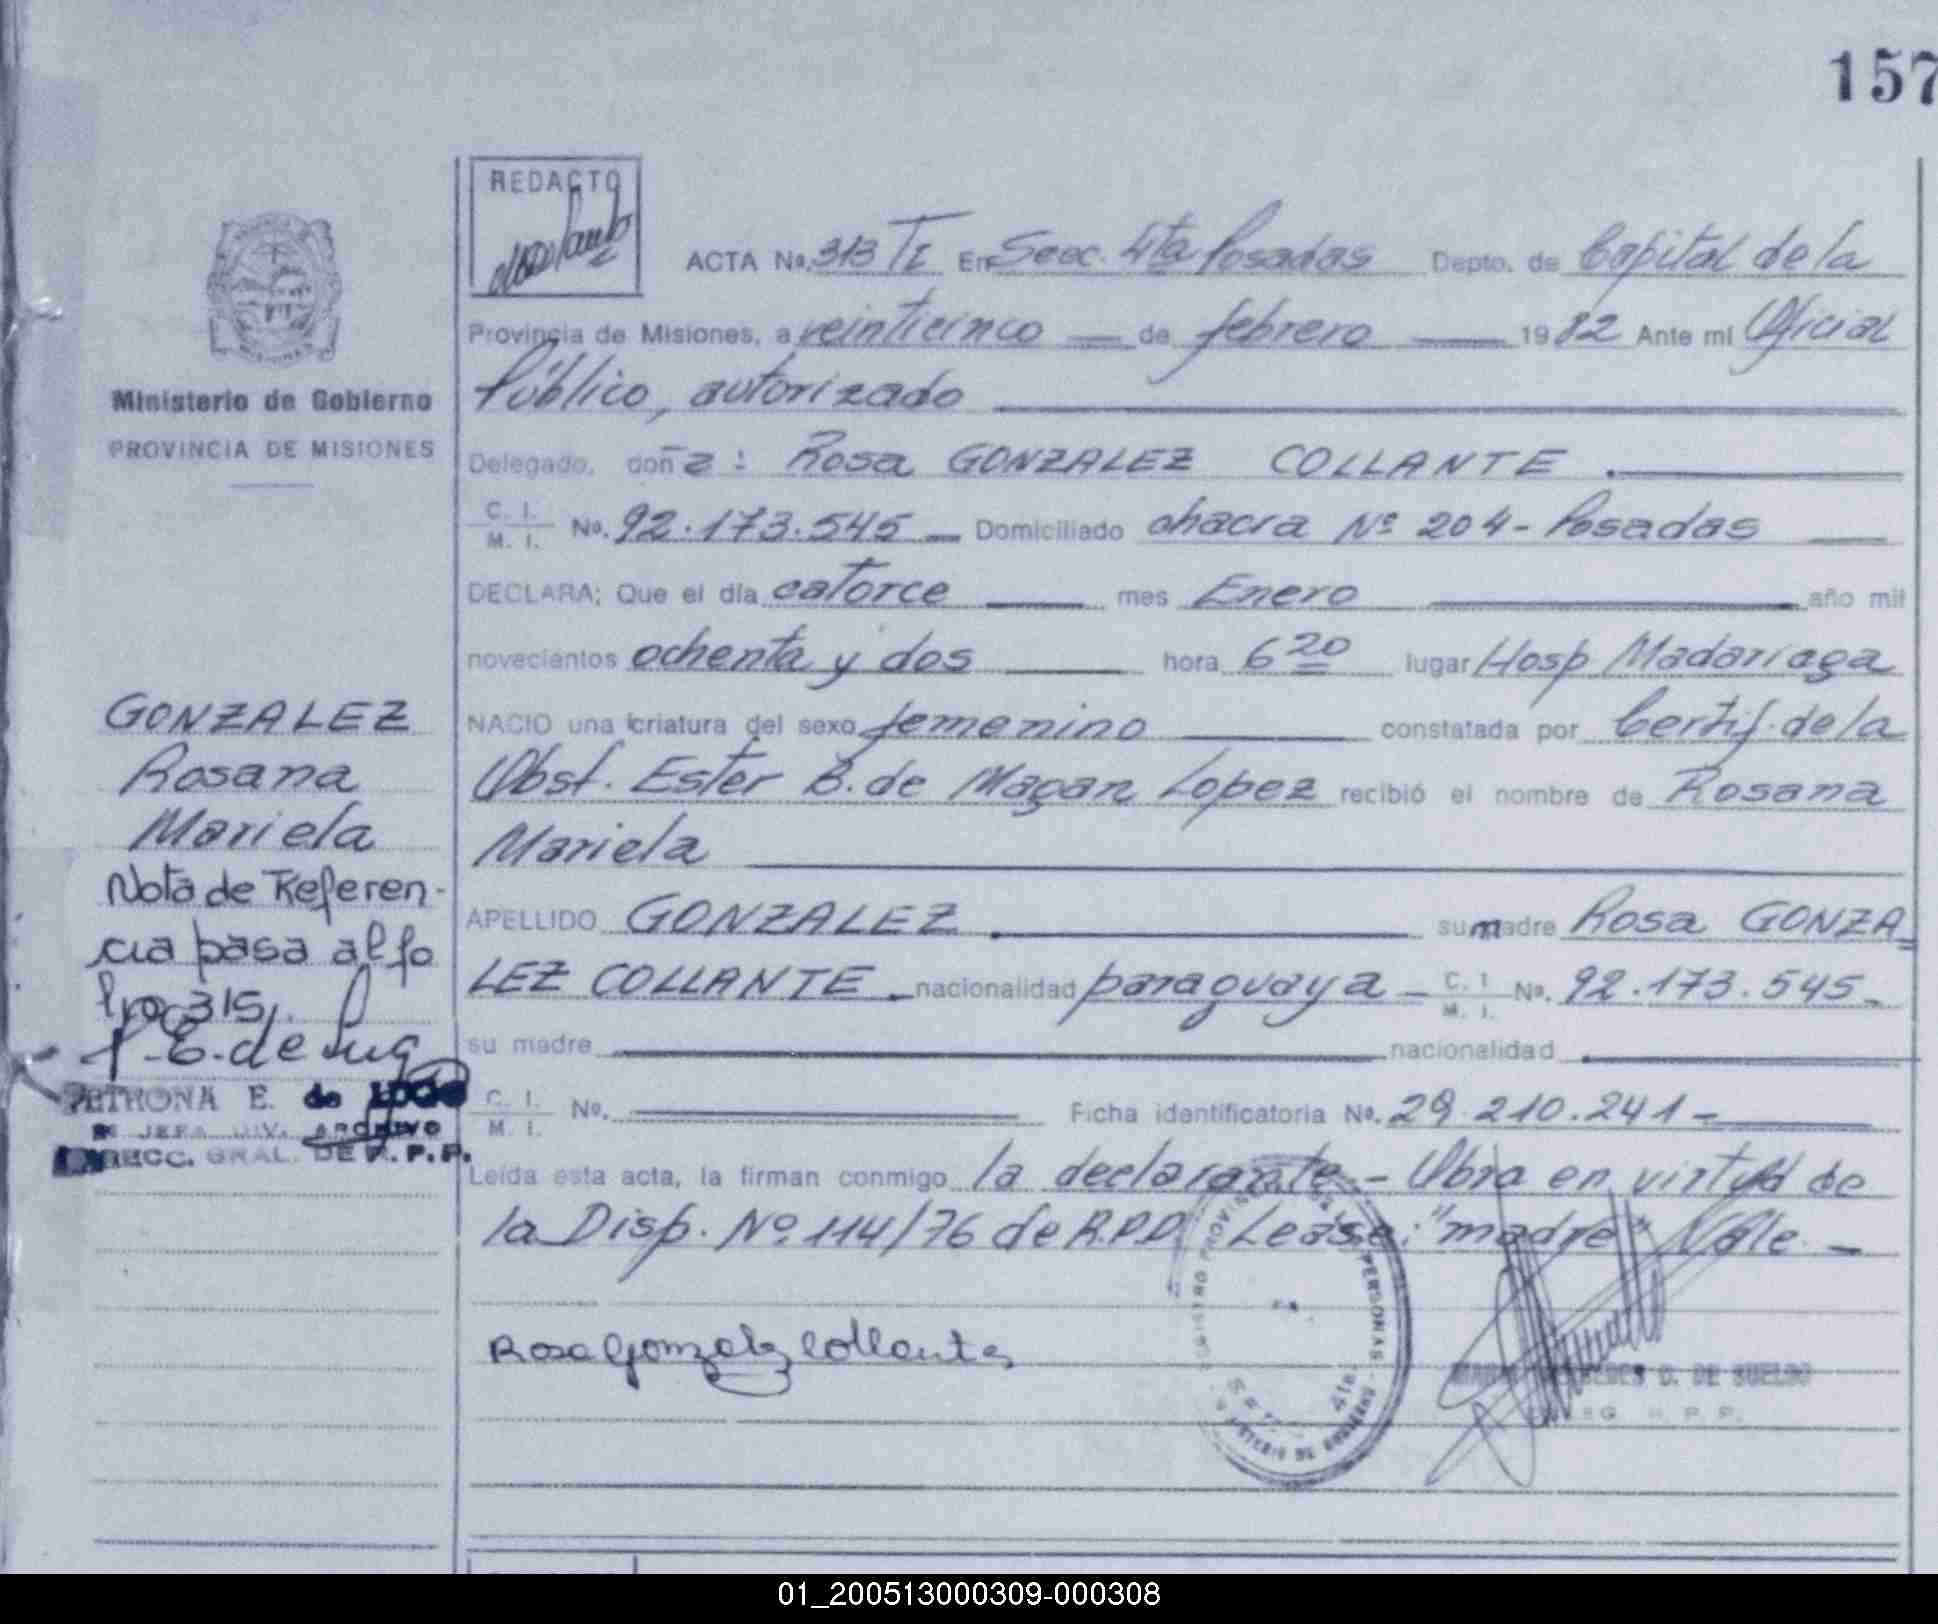 157
REDACTO
ACTA No. 313 TI En Secc. 4ta Posadas Depto. de Capital de la
Provincia de Misiones, a veinticinco — de febrero — 1982 Ante mi Oficial
Público, autorizado
Ministerio de Gobierno
PROVINCIA DE MISIONES
Delegado, doña: Rosa GONZALEZ COLLANTE.
C. I. M. I. No. 92.173.545 — Domiciliado chacra Nº 204 - Posadas
DECLARA; Que el día catorce — mes Enero — año mil
novecientos ochenta y dos — hora 6 20 lugar Hosp Madariaga
NACIO una criatura del sexo femenino — constatada por Certif. de la
Obst. Ester B. de Magan Lopez recibió el nombre de Rosana
Mariela
APELLIDO GONZALEZ. su madre Rosa GONZA
LEZ COLLANTE. nacionalidad paraguaya - C. I. M. I. No. 92.173.545-
su madre — nacionalidad
C. I. M. I. No. — Ficha identificatoria No. 29.210.241-
Leída esta acta, la firman conmigo la declarante - Obra en virtud de
la Disp. Nº 114/76 de R.P.P. Lease: "madre" Vale -
Rosa Gonzalez Collante
DE SUELDO
R. P. P.
4ta.
GONZALEZ
Rosana
Mariela
Nota de Referen-
cia pasa al fo
lio 315.
P. E. de Lug
PETRONA E. de LUGO
JEFA DIV. ARCHIVO
DIRECC. GRAL. DE R. P. P.
01_200513000309-000308